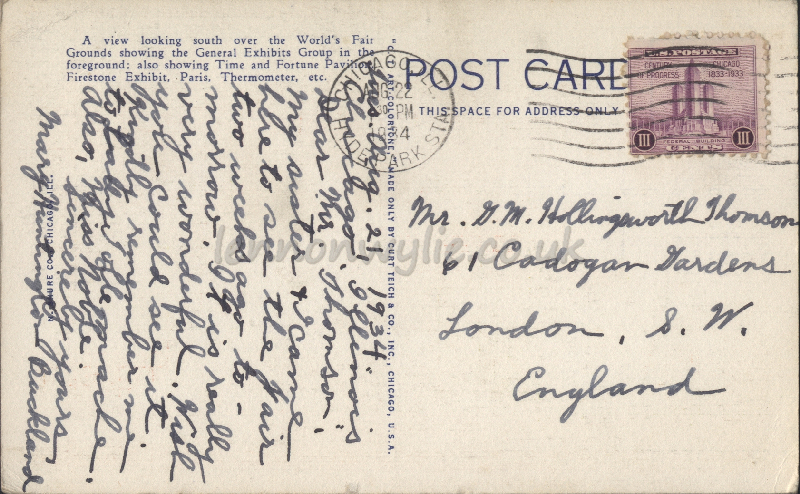 A view looking south over the World's Fair
Grounds showing the General Exhibits Group in the
foreground; also showing Time and Fortune Pavilion,
Firestone Exhibit, Paris, Thermometer, etc.
Aug. 21, 1934
Chicago, Illinois
Dear Mr. Thomson:
My sister & I came
here to see the Fair
two weeks ago to-
morrow. It is really
very wonderful. Wish
you could see it.
Kindly remember me
to
Also, Miss Noble.
Sincerely yours,
Mary Huntington Buckland
"C.T. ART-COLORTONE" MADE ONLY BY CURT TEICH & CO., INC., CHICAGO, U.S.A.
CHICAGO
AUG 22
PM
1934
HYDE PARK STA.
POST CARD
THIS SPACE FOR ADDRESS ONLY
U.S. POSTAGE
CENTURY OF PROGRESS
CHICAGO 1833-1933
III
III
FEDERAL BUILDING
Mr. G. M. Hollingsworth Thomson
61 Cadogan Gardens
London, S. W.
England
lennonwylie.co.uk